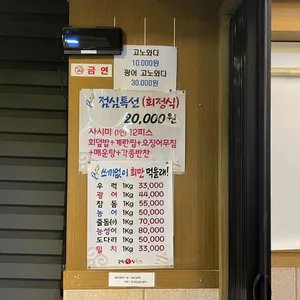 고노와다
10.000원
광어 고노와다
30.000원
금연
점심특선 (회정식)
20,000원
사시미 (1인) 12피스
회덮밥+계란찜+오징어무침
+매운탕+각종반찬
쓰끼없이 회만 먹을래!
우럭 1Kg 33,000
광어 1Kg 44,000
참돔 1Kg 55,000
농어 1Kg 50,000
줄돔(小) 1Kg 70,000
능성어 1Kg 80,000
도다리 1Kg 50,000
밀치 1Kg 33,000